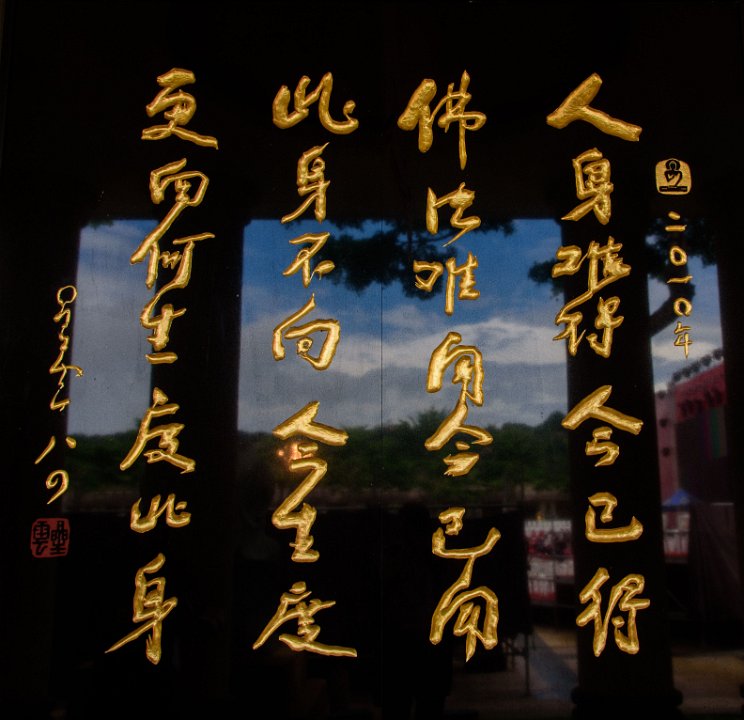 二〇一〇年
人身難得今已得
佛法難聞今已聞
此身不向今生度
更向何生度此身
星雲 八四
星雲